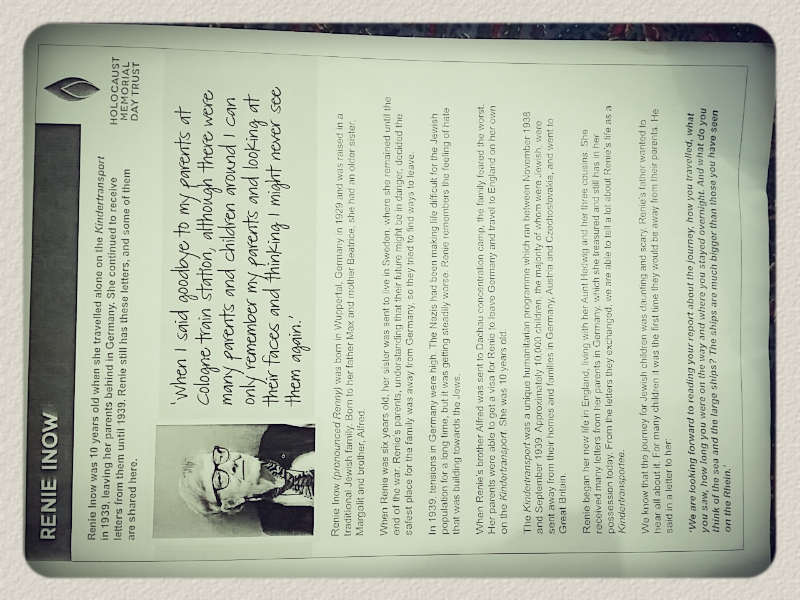 RENIE INOW
HOLOCAUST
MEMORIAL
DAY TRUST
Renie Inow was 10 years old when she travelled alone on the Kindertransport
in 1939, leaving her parents behind in Germany. She continued to receive
letters from them until 1939. Renie still has these letters, and some of them
are shared here.
'When I said goodbye to my parents at
Cologne train station, although there were
many parents and children around I can
only remember my parents and looking at
their faces and thinking I might never see
them again.'
Renie Inow (pronounced Renny) was born in Wuppertal, Germany in 1929 and was raised in a
traditional Jewish family. Born to her father Max and mother Beatrice, she had an older sister,
Margalit and brother, Alfred.
When Renie was six years old, her sister was sent to live in Sweden, where she remained until the
end of the war. Renie's parents, understanding that their future might be in danger, decided the
safest place for the family was away from Germany, so they tried to find ways to leave.
In 1939, tensions in Germany were high. The Nazis had been making life difficult for the Jewish
population for a long time, but it was getting steadily worse. Renie remembers the feeling of hate
that was building towards the Jews.
When Renie's brother Alfred was sent to Dachau concentration camp, the family feared the worst.
Her parents were able to get a visa for Renie to leave Germany and travel to England on her own
on the Kindertransport. She was 10 years old.
The Kindertransport was a unique humanitarian programme which ran between November 1938
and September 1939. Approximately 10,000 children, the majority of whom were Jewish, were
sent away from their homes and families in Germany, Austria and Czechoslovakia, and went to
Great Britain.
Renie began her new life in England, living with her Aunt Hedwig and her three cousins. She
received many letters from her parents in Germany, which she treasured and still has in her
possession today. From the letters they exchanged, we are able to tell a lot about Renie's life as a
Kindertransportee.
We know that the journey for Jewish children was daunting and scary. Renie's father wanted to
hear all about it. For many children it was the first time they would be away from their parents. He
said in a letter to her:
'We are looking forward to reading your report about the journey, how you travelled, what
you saw, how long you were on the way and where you stayed overnight. And what do you
think of the sea and the large ships? The ships are much bigger than those you have seen
on the Rhein.